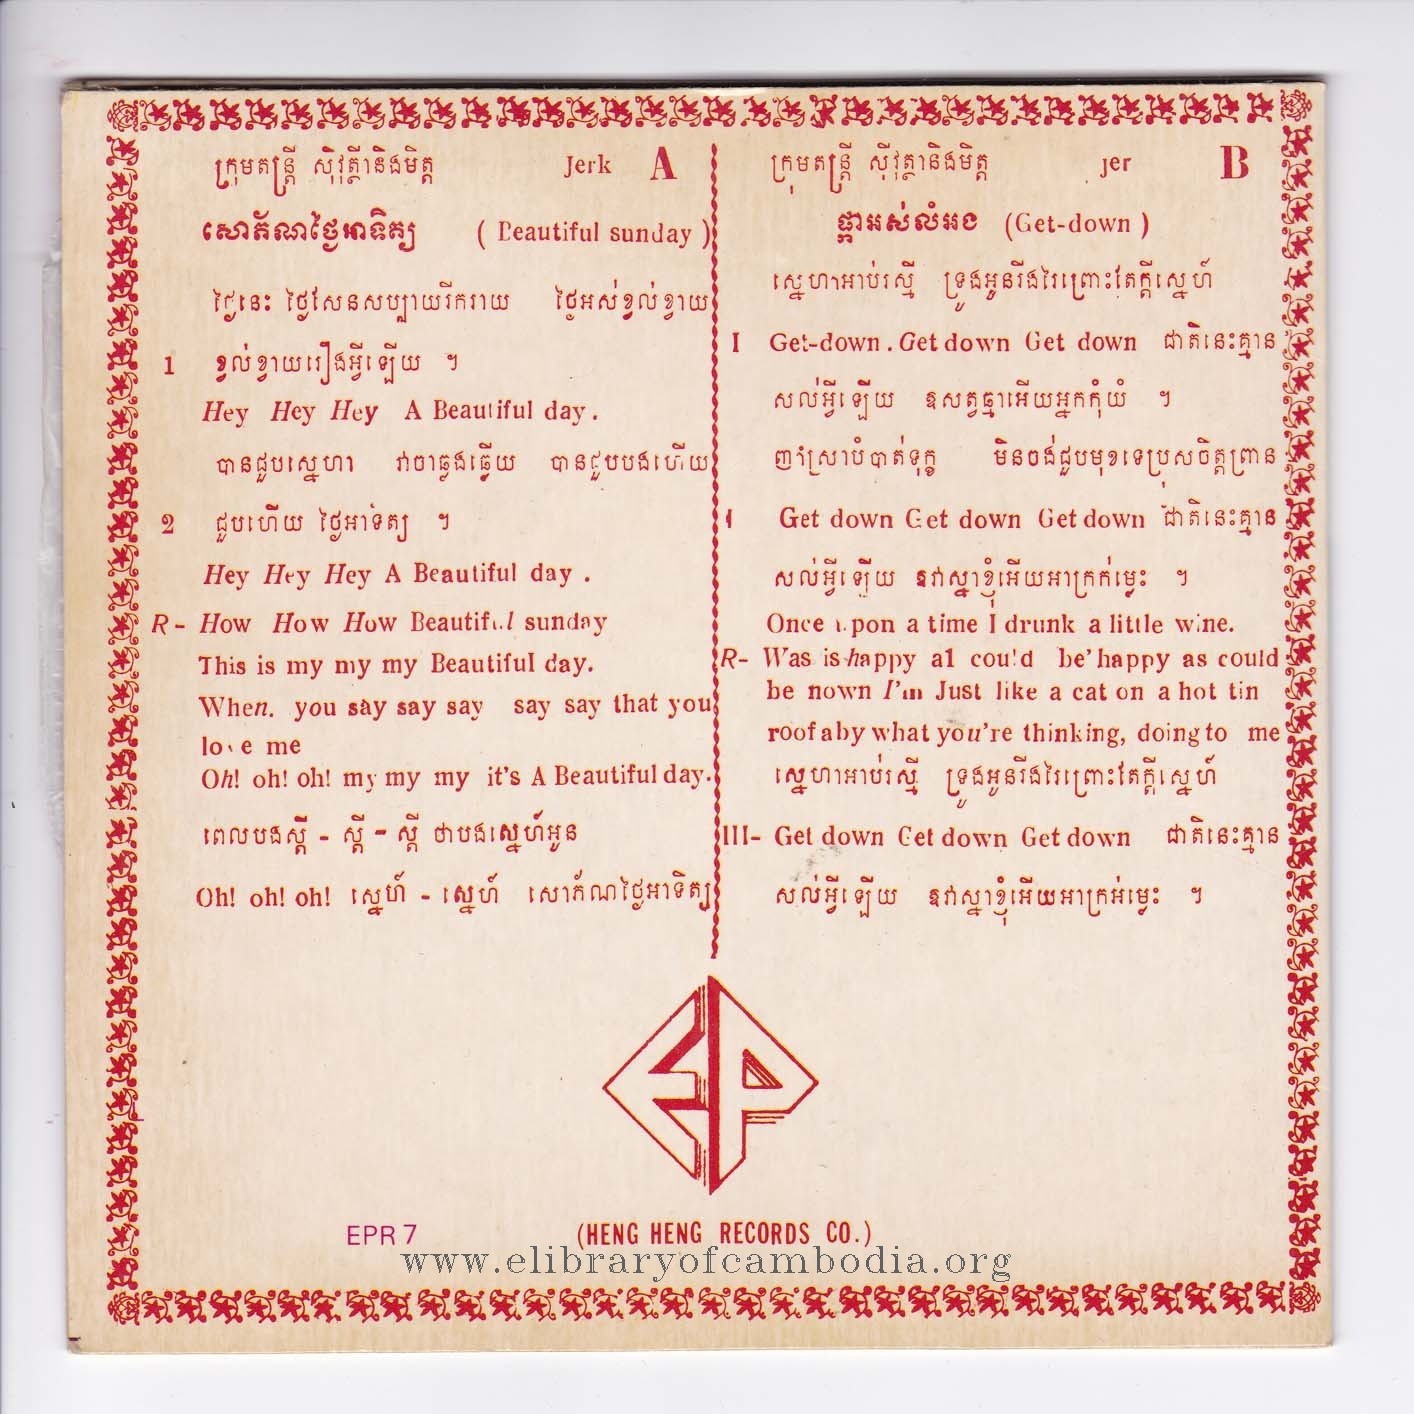 ក្រុមតន្ត្រី ស៊ីវុត្ថានិងមិត្ត Jerk A
សោភ័ណថ្ងៃអាទិត្យ ( Beautiful sunday )
ថ្ងៃនេះ ថ្ងៃសែនសប្បាយរីករាយ ថ្ងៃអស់ខ្វល់ខ្វាយ
1 ខ្វល់ខ្វាយរឿងអ្វីឡើយ ។
Hey Hey Hey A Beautiful day .
បានជួបស្នេហា វាចាឆ្លងឆ្លើយ បានជួបបងហើយ
2 ជួបហើយ ថ្ងៃអាទិត្យ ។
Hey Hey Hey A Beautiful day .
R - How How How Beautiful sunday
This is my my my Beautiful day.
When. you say say say say say that you
love me
Oh! oh! oh! my my my it's A Beautiful day.
ពេលបងស្ដី - ស្ដី - ស្ដី ថាបងស្នេហ៍អូន
Oh! oh! oh! ស្នេហ៍ - ស្នេហ៍ សោភ័ណថ្ងៃអាទិត្យ
ក្រុមតន្ត្រី ស៊ីវុត្ថានិងមិត្ត jer B
ផ្កាអស់លំអង (Get-down )
ស្នេហាអាប់រស្មី ទ្រូងអូនរីងរៃព្រោះតែក្ដីស្នេហ៍
I Get-down . Get down Get down ជាតិនេះគ្មាន
សល់អ្វីឡើយ ឱសត្វធ្មាអើយអ្នកកុំយំ ។
ស្រាបំបាត់ទុក្ខ មិនចង់ជួបមុខទេប្រុសចិត្តព្រាន
I Get down Get down Get down ជាតិនេះគ្មាន
សល់អ្វីឡើយ ឱវាស្នាខ្ញុំអើយអាក្រក់ម្លេះ ។
Once upon a time I drunk a little wine.
R- Was is happy a1 could be'happy as could
be nown I'm Just like a cat on a hot tin
roof aby what you're thinking, doing to me
ស្នេហាអាប់រស្មី ទ្រូងអូនរីងរៃព្រោះតែក្ដីស្នេហ៍
III- Get down Get down Get down ជាតិនេះគ្មាន
សល់អ្វីឡើយ ឱវាស្នាខ្ញុំអើយអាក្រអ់ម្លេះ ។
EP
EPR 7 (HENG HENG RECORDS CO.)
www.elibraryofcambodia.org